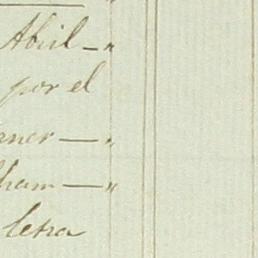 Abril — "
por el
aner — "
ham — "
letra